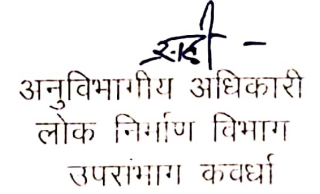 सही -
अनुविभागीय अधिकारी
लोक निर्माण विभाग
उपसंभाग कवर्धा